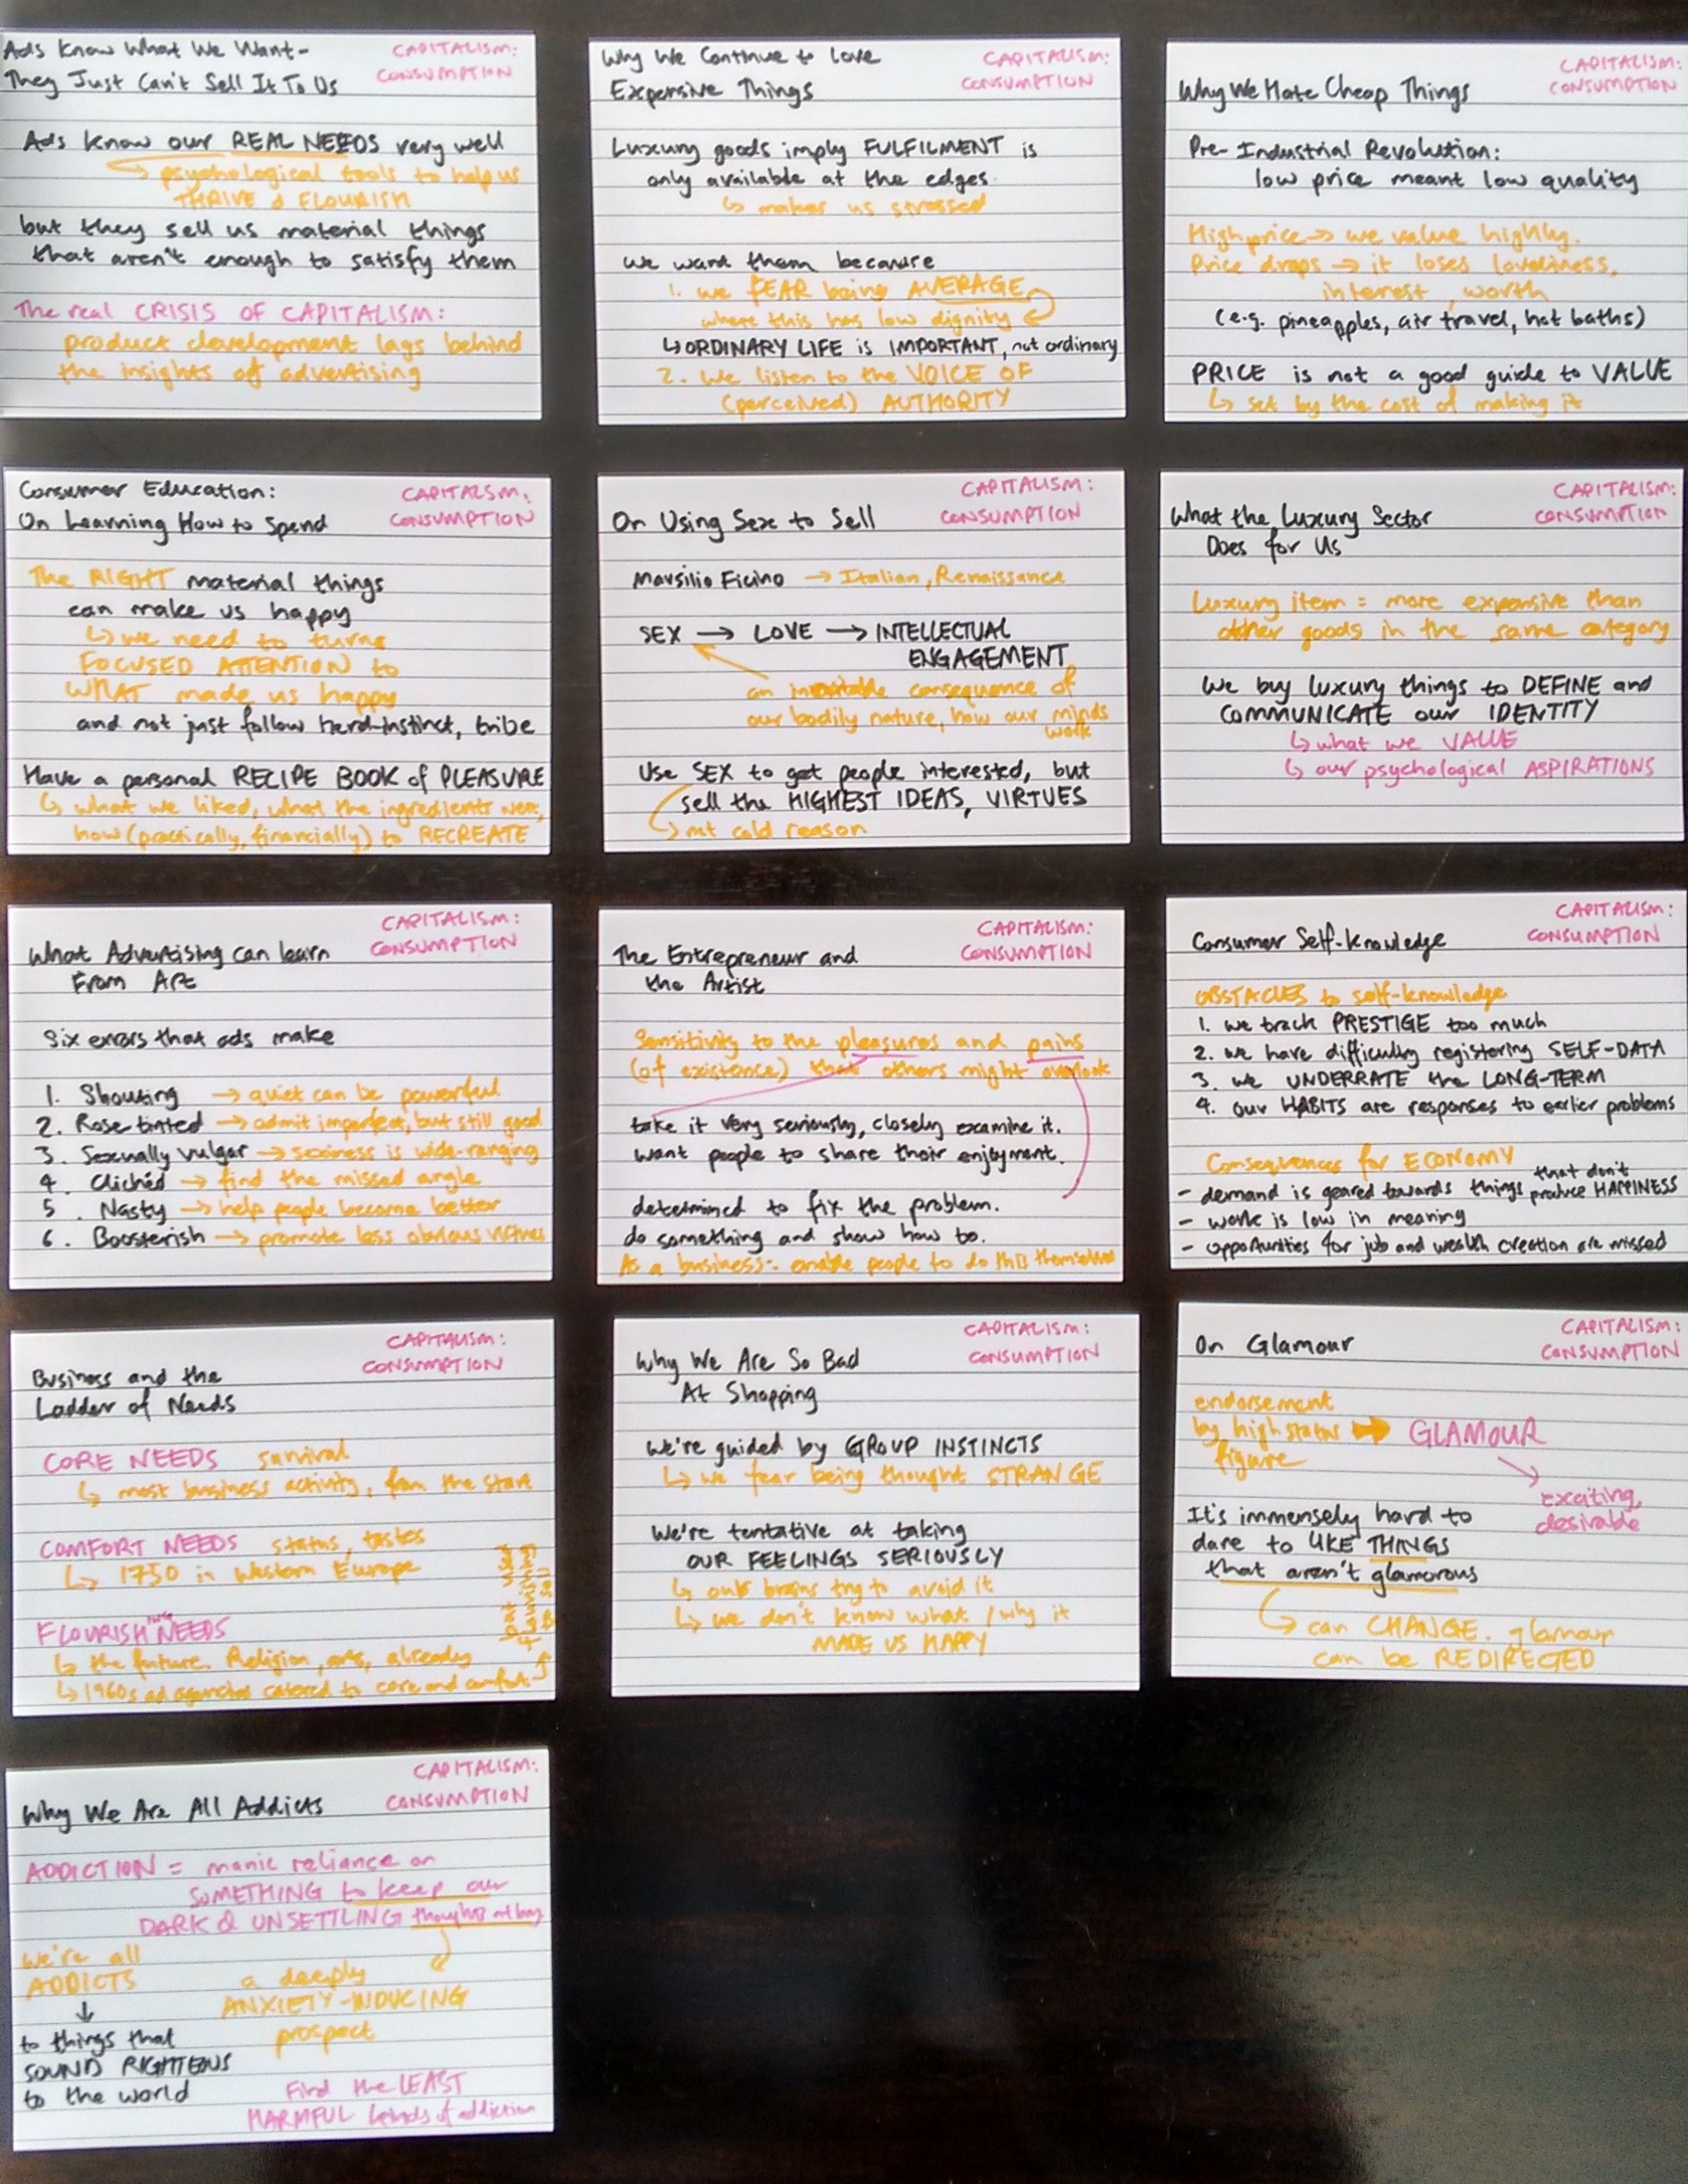 Ads Know What We Want-
They Just Can't Sell It To Us
CAPITALISM:
CONSUMPTION
Ads know our REAL NEEDS very well
↳ psychological tools to help us
THRIVE & FLOURISH
but they sell us material things
that aren't enough to satisfy them
The real CRISIS OF CAPITALISM:
product development lags behind
the insights of advertising
Why We Continue to Love
Expensive Things
CAPITALISM:
CONSUMPTION
Luxury goods imply FULFILMENT is
only available at the edges.
↳ makes us stressed
we want them because
1. we FEAR being AVERAGE
where this has low dignity
↳ ORDINARY LIFE is IMPORTANT, not ordinary
2. We listen to the VOICE OF
(perceived) AUTHORITY
Why We Hate Cheap Things
CAPITALISM:
CONSUMPTION
Pre-Industrial Revolution:
low price meant low quality
High price → we value highly.
Price drops → it loses loveliness,
interest, worth
(e.g. pineapples, air travel, hot baths)
PRICE is not a good guide to VALUE
↳ set by the cost of making it
Consumer Education:
On Learning How to Spend
CAPITALSM:
CONSUMPTION
The RIGHT material things
can make us happy
↳ we need to turn
FOCUSED ATTENTION to
WHAT made us happy
and not just follow herd-instinct, tribe
Have a personal RECIPE BOOK of PLEASURE
↳ what we liked, what the ingredients were,
how (practically, financially) to RECREATE
On Using Sex to Sell
CAPITALISM:
CONSUMPTION
Marsilio Ficino → Italian, Renaissance
SEX → LOVE → INTELLECTUAL
ENGAGEMENT
an inevitable consequence of
our bodily nature, how our minds
work
Use SEX to get people interested, but
sell the HIGHEST IDEAS, VIRTUES
↳ not cold reason
What the Luxury Sector
Does for Us
CAPITALISM:
CONSUMPTION
Luxury item = more expensive than
other goods in the same category
We buy luxury things to DEFINE and
COMMUNICATE our IDENTITY
↳ what we VALUE
↳ our psychological ASPIRATIONS
What Advertising can learn
From Art
CAPITALISM:
CONSUMPTION
Six errors that ads make
1. Shouting → quiet can be powerful
2. Rose tinted → admit imperfect, but still good
3. Sexually vulgar → sexiness is wide-ranging
4. Clichéd → find the missed angle
5. Nasty → help people become better
6. Boosterish → promote less obvious virtues
The Entrepreneur and
the Artist
CAPITALISM:
CONSUMPTION
Sensitivity to the pleasures and pains
(of existence) that others might overlook
take it very seriously, closely examine it.
want people to share their enjoyment.
determined to fix the problem.
do something and show how to.
As a business: enable people to do this themselves
Consumer Self-Knowledge
CAPITALISM:
CONSUMPTION
OBSTACLES to self-knowledge
1. we track PRESTIGE too much
2. we have difficulty registering SELF-DATA
3. we UNDERRATE the LONG-TERM
4. our HABITS are responses to earlier problems
Consequences for ECONOMY
- demand is geared towards things that don't produce HAPPINESS
- work is low in meaning
- opportunities for job and wealth creation are missed
Business and the
Ladder of Needs
CAPITALISM:
CONSUMPTION
CORE NEEDS survival
↳ most business activity, from the start
COMFORT NEEDS status, tastes
↳ 1750 in Western Europe
FLOURISHING NEEDS
↳ the future. Religion, arts, already
↳ 1960s ad agencies catered to core and comfort.
but used
flourishing
to sell
Why We Are So Bad
At Shopping
CAPITALISM:
CONSUMPTION
We're guided by GROUP INSTINCTS
↳ we fear being thought STRANGE
We're tentative at taking
OUR FEELINGS SERIOUSLY
↳ our brains try to avoid it
↳ we don't know what / why it
MADE US HAPPY
On Glamour
CAPITALISM:
CONSUMPTION
endorsement
by high status → GLAMOUR
figure
exciting,
desirable
It's immensely hard to
dare to LIKE THINGS
that aren't glamorous
↳ can CHANGE. glamour
can be REDIRECTED
Why We Are All Addicts
CAPITALISM:
CONSUMPTION
ADDICTION = manic reliance on
SOMETHING to keep our
DARK & UNSETTLING thoughts at bay
we're all
ADDICTS
↓
to things that
SOUND RIGHTEOUS
to the world
a deeply
ANXIETY-INDUCING
prospect
Find the LEAST
HARMFUL kinds of addiction